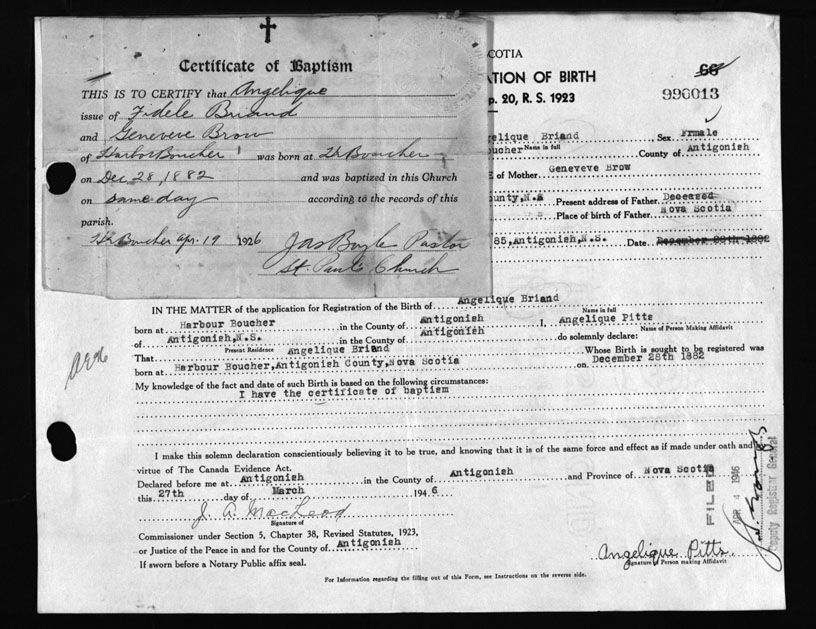 Certificate of Baptism
THIS IS TO CERTIFY that Angelique
issue of Fidele Briand
and Geneveve Brow
of Harbor Boucher was born at Hr Boucher
on Dec 28, 1882 and was baptized in this Church
on same day according to the records of this
parish.
Hr Boucher Apr. 19 1926 Jas Boyle Pastor
St. Paul's Church
SCOTIA
ATION OF BIRTH
p. 20, R. S. 1923
66
990013
gelique Briand Sex Frmale
oucher Name in full County of Antigonish
of Mother Geneveve Brow
ounty, N.S Present address of Father Deceased
Place of birth of Father Nova Scotia
85, Antigonish, N.S. Date December 28th 1882
IN THE MATTER of the application for Registration of the Birth of Angelique Briand
Name in full
born at Harbour Boucher in the County of Antigonish I, Angelique Pitts
Name of Person Making Affidavit
of Antigonish, N.S. in the County of Antigonish do solemnly declare:
Present Residence
That Angelique Briand Whose Birth is sought to be registered was
born at Harbour Boucher, Antigonish County, Nova Scotia on December 28th 1882
My knowledge of the fact and date of such Birth is based on the following circumstances:
I have the certificate of baptism
I make this solemn declaration conscientiously believing it to be true, and knowing that it is of the same force and effect as if made under oath and by
virtue of The Canada Evidence Act.
Declared before me at Antigonish in the County of Antigonish and Province of Nova Scotia
this 27th day of March 1946
J. A. MacLeod
Signature of
Commissioner under Section 5, Chapter 38, Revised Statutes, 1923,
or Justice of the Peace in and for the County of Antigonish
If sworn before a Notary Public affix seal.
Angelique Pitts
Signature of Person making Affidavit
For Information regarding the filling out of this Form, see Instructions on the reverse side.
FILED
APR 4 1946
Deputy Registrar General